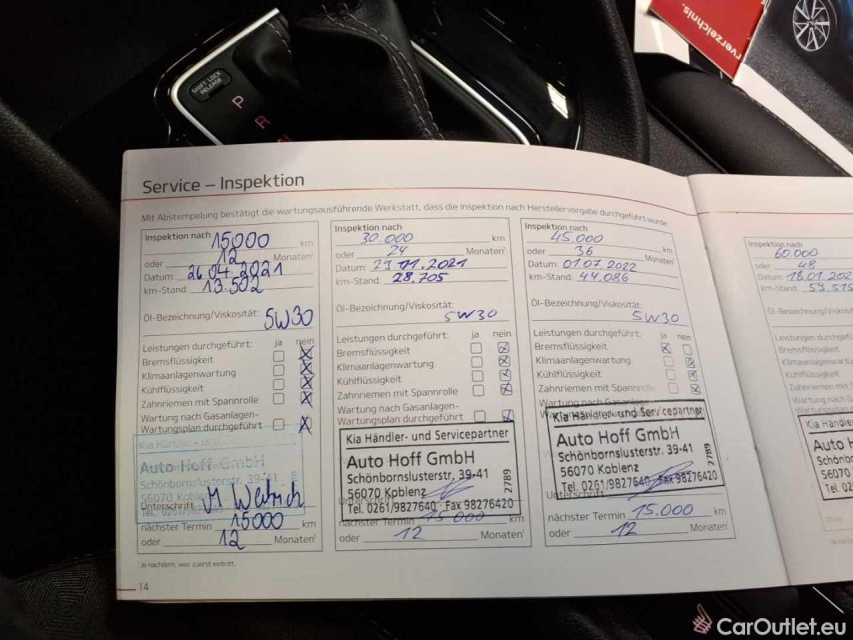 SHIFT LOCK
RELEASE
P
R
verzeichnis.
Service – Inspektion
Mit Abstempelung bestätigt die wartungsausführende Werkstatt, dass die Inspektion nach Herstellervorgabe durchgeführt wurde
Inspektion nach 15000 km
oder 12 Monaten¹
Datum: 26.04.2021
km-Stand: 13.502
Öl-Bezeichnung/Viskosität:
5W30
Leistungen durchgeführt: ja nein
Bremsflüssigkeit
Klimaanlagenwartung
Kühlflüssigkeit
Zahnriemen mit Spannrolle
Wartung nach Gasanlagen-
Wartungsplan durchgeführt
Kia Händler-
Auto Hoff GmbH
Schönbornslusterstr. 39-41
56070 Koblenz
Tel. 0261/9827640
Unterschrift
nächster Termin 15000 km
oder 12 Monaten¹
¹Je nachdem, was zuerst eintritt.
14
Inspektion nach
30.000 km
oder 24 Monaten¹
Datum: 29.11.2021
km-Stand: 28.705
Öl-Bezeichnung/Viskosität:
5W30
Leistungen durchgeführt: ja nein
Bremsflüssigkeit
Klimaanlagenwartung
Kühlflüssigkeit
Zahnriemen mit Spannrolle
Wartung nach Gasanlagen-
Wartungsplan durchgeführt
Kia Händler- und Servicepartner
Auto Hoff GmbH
Schönbornslusterstr. 39-41
56070 Koblenz
Tel. 0261/9827640 · Fax 98276420
2789
Unterschrift
nächster Termin 15 000 km
oder 12 Monaten¹
Inspektion nach
45.000 km
oder 36 Monaten¹
Datum: 01.07.2022
km-Stand: 44.086
Öl-Bezeichnung/Viskosität:
5W30
Leistungen durchgeführt: ja nein
Bremsflüssigkeit
Klimaanlagenwartung
Kühlflüssigkeit
Zahnriemen mit Spannrolle
Wartung nach Gasanlagen-
Kia Händler- und Servicepartner
Auto Hoff GmbH
Schönbornslusterstr. 39-41
56070 Koblenz
Tel. 0261/9827640 Fax 98276420
2789
Unterschrift
nächster Termin 15.000 km
oder 12 Monaten¹
Inspektion nach
60.000
oder 48
Datum: 18.01.202
km-Stand:
Öl-Bezeichnung/Viskosität
Leistungen durchgeführt:
Bremsflüssigkeit
Klimaanlagenwartung
Kühlflüssigkeit
Zahnriemen mit
Wartung nach
Kia Händler
Auto H
Schönbo
56070
Tel.
CarOutlet.eu